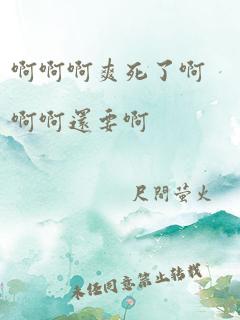 啊啊啊爽死了啊
啊啊還要啊
尺間萤火
未经同意禁止转载